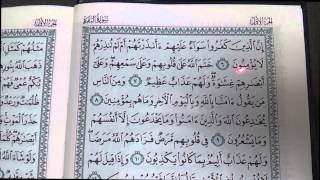 سُورَةُ البَقَرَةِ
الجُزْءُ الأَوَّلُ
إِنَّ ٱلَّذِينَ كَفَرُوا۟ سَوَآءٌ عَلَيْهِمْ ءَأَنذَرْتَهُمْ أَمْ لَمْ تُنذِرْهُمْ
لَا يُؤْمِنُونَ ٦ خَتَمَ ٱللَّهُ عَلَىٰ قُلُوبِهِمْ وَعَلَىٰ سَمْعِهِمْ وَعَلَىٰٓ
أَبْصَٰرِهِمْ غِشَٰوَةٌ وَلَهُمْ عَذَابٌ عَظِيمٌ ٧ وَمِنَ ٱلنَّاسِ
مَن يَقُولُ ءَامَنَّا بِٱللَّهِ وَبِٱلْيَوْمِ ٱلْءَاخِرِ وَمَا هُم بِمُؤْمِنِينَ ٨
يُخَٰدِعُونَ ٱللَّهَ وَٱلَّذِينَ ءَامَنُوا۟ وَمَا يَخْدَعُونَ إِلَّآ أَنفُسَهُمْ
وَمَا يَشْعُرُونَ ٩ فِى قُلُوبِهِم مَّرَضٌ فَزَادَهُمُ ٱللَّهُ مَرَضًا
وَلَهُمْ عَذَابٌ أَلِيمٌۢ بِمَا كَانُوا۟ يَكْذِبُونَ ١٠ وَإِذَا قِيلَ لَهُمْ
مَثَلُهُمْ كَمَثَلِ